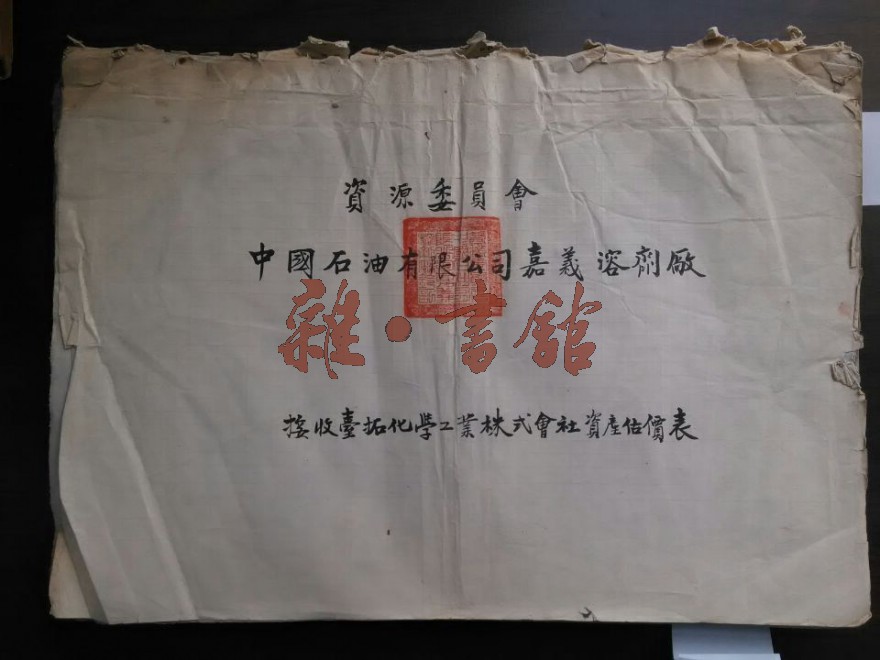 資源委員會
中國石油有限公司嘉義溶劑廠
雜·書館
接收臺拓化學工業株式會社資產估價表